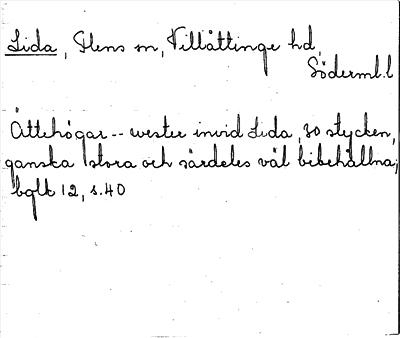 Lida, Flens sn, Villåttinge hd,
Söderml.l
Ättehögar -- wester invid Lida, 30 stycken,
ganska stora och särdeles väl bibehållna;
bqlk 12, s.40